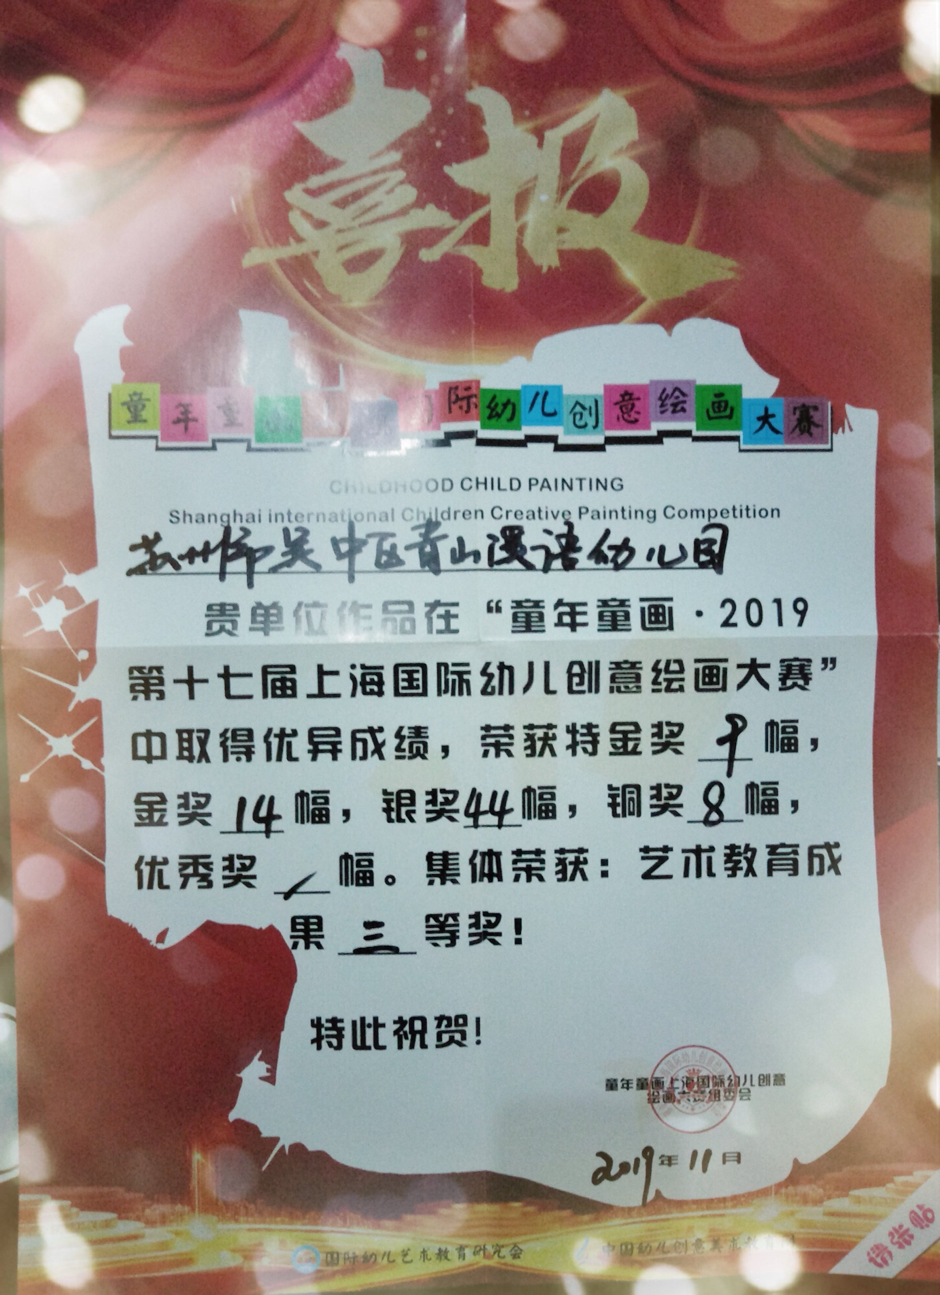 喜报
童年童 际幼儿创意绘画大赛
CHILDHOOD CHILD PAINTING
Shanghai international Children Creative Painting Competition
苏州市吴中区青山漫语幼儿园
贵单位作品在“童年童画·2019
第十七届上海国际幼儿创意绘画大赛”
中取得优异成绩，荣获特金奖 9 幅，
金奖 14 幅，银奖44幅，铜奖 8 幅，
优秀奖 / 幅。集体荣获：艺术教育成
果 三 等奖！
特此祝贺！
童年童画上海国际幼儿创意
绘画大赛组委会
2019年11月
国际幼儿艺术教育研究会
中国幼儿创意美术教育
供张贴